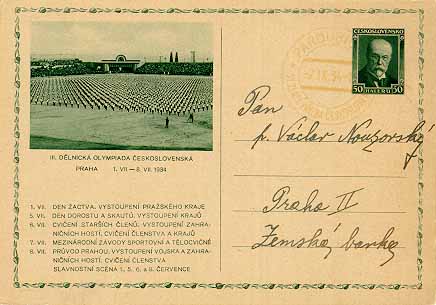 III. DĚLNICKÁ OLYMPIADA ČESKOSLOVENSKÁ
PRAHA 1. VII — 8. VII. 1934
1. VII. DEN ŽACTVA. VYSTOUPENÍ PRAŽSKÉHO KRAJE
5. VII. DEN DOROSTU A SKAUTŮ. VYSTOUPENÍ KRAJŮ
6. VII. CVIČENÍ STARŠÍCH ČLENŮ. VYSTOUPENÍ ZAHRA-
NIČNÍCH HOSTÍ. CVIČENÍ ČLENSTVA A KRAJŮ
7. VII. MEZINÁRODNÍ ZÁVODY SPORTOVNÍ A TĚLOCVIČNÉ
8. VII. PRŮVOD PRAHOU. VYSTOUPENÍ VOJSKA A ZAHRA-
NIČNÍCH HOSTÍ. CVIČENÍ ČLENSTVA
SLAVNOSTNÍ SCÉNA 1. 5. 6. a 8. ČERVENCE
ČESKOSLOVENSKO
50 HALÉŘŮ 50
Pan
p. Václav
Praha II
Zemská banka